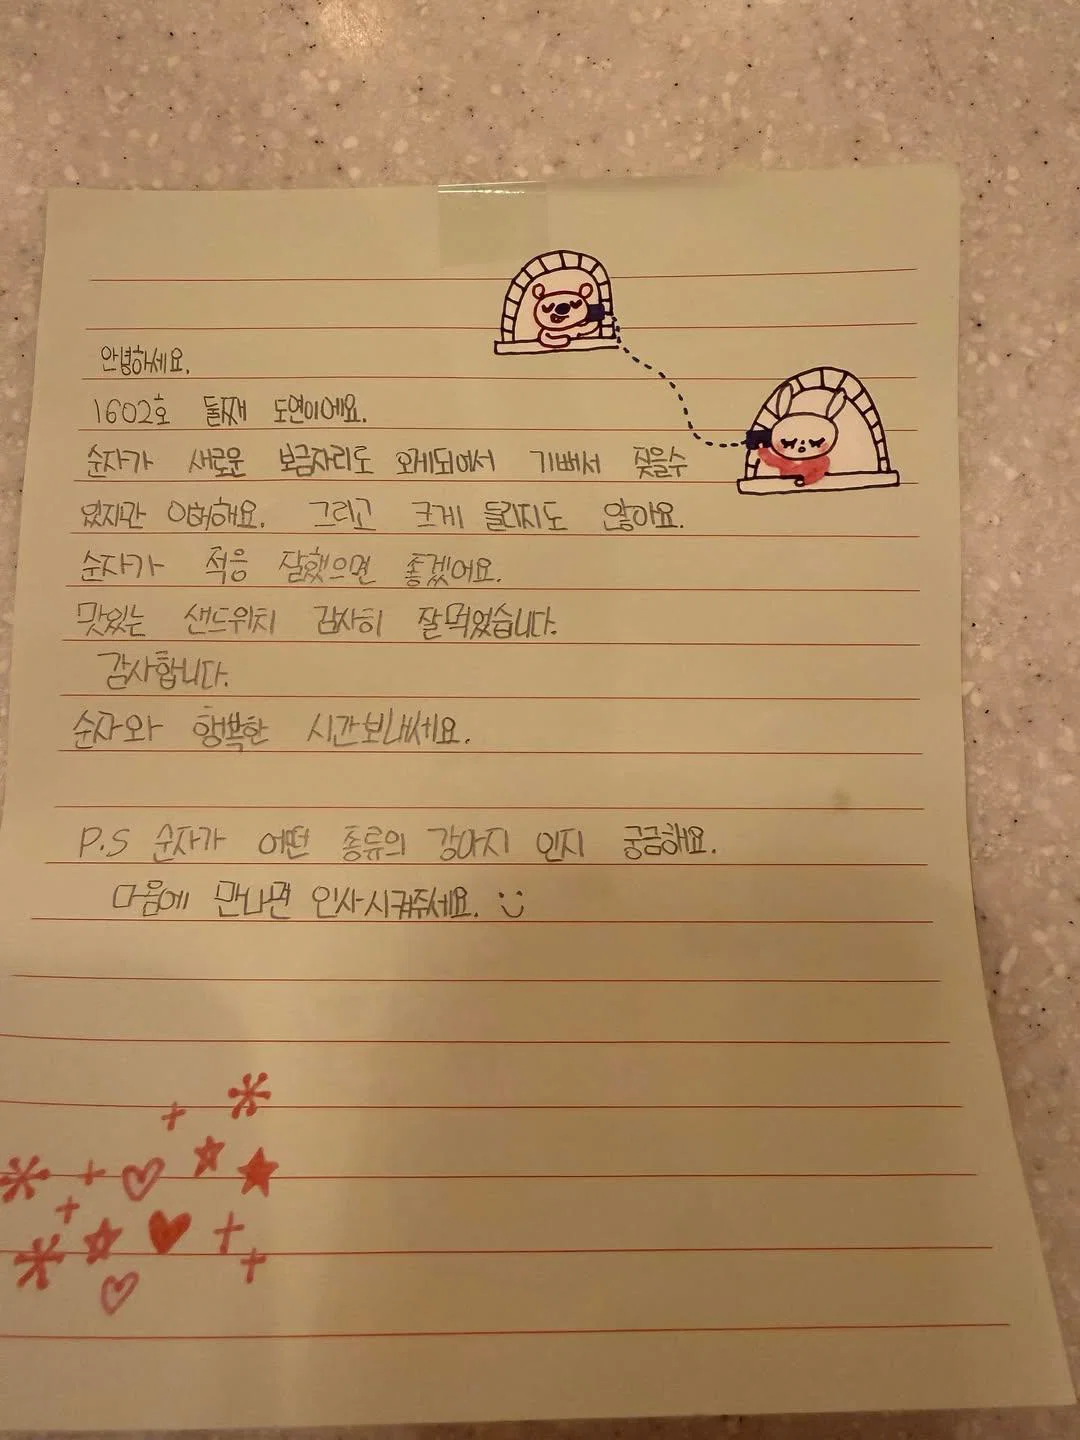 안녕하세요.
1602호 둘째 도연이에요.
순자가 새로운 보금자리로 오게되어서 기뻐서 짖을수
있지만 이해해요. 그리고 크게 들리지도 않아요.
순자가 적응 잘했으면 좋겠어요.
맛있는 샌드위치 감사히 잘먹었습니다.
감사합니다.
순자와 행복한 시간보내세요.
P.S 순자가 어떤 종류의 강아지 인지 궁금해요.
다음에 만나면 인사시켜주세요. :)